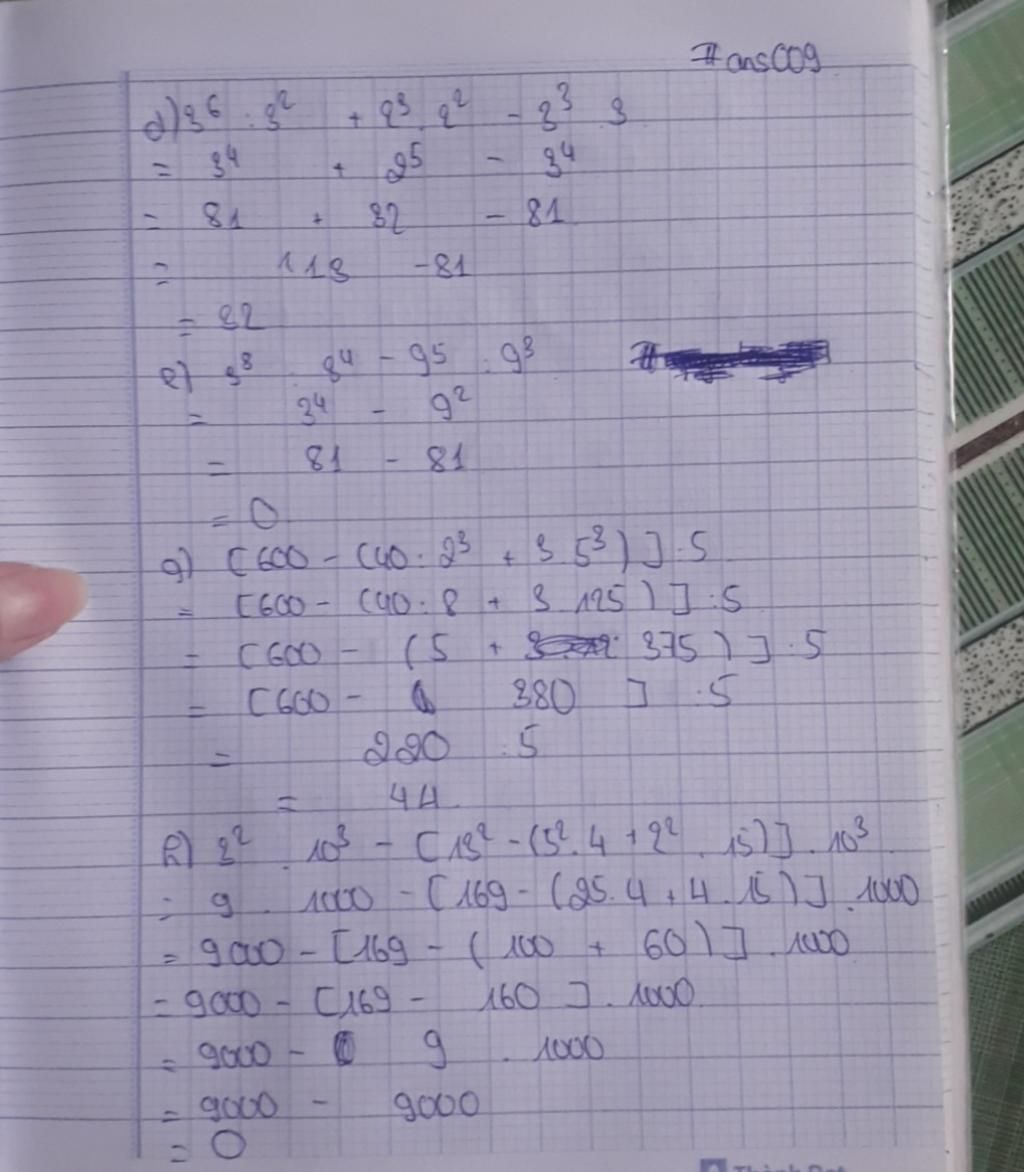 #ans009
d) 3⁶ : 3² + 2³ . 2² - 3³ 3
= 3⁴ + 2⁵ - 3⁴
= 81 + 32 - 81
= 113 - 81
= 32
e) 3⁸ : 3⁴ - 9⁵ : 9³
= 3⁴ - 9²
= 81 - 81
= 0
g) [600 - (40 : 2³ + 3 5³)] : 5
= [600 - (40 : 8 + 3 125)] : 5
= [600 - (5 + 375)] : 5
= [600 - 380] : 5
= 220 : 5
= 44
h) 3² . 10³ - [13² - (5² . 4 + 2² . 15)] . 10³
= 9 . 1000 - [169 - (25 . 4 + 4 . 15)] . 1000
= 9000 - [169 - (100 + 60)] . 1000
= 9000 - [169 - 160] . 1000
= 9000 - 9 . 1000
= 9000 - 9000
= 0